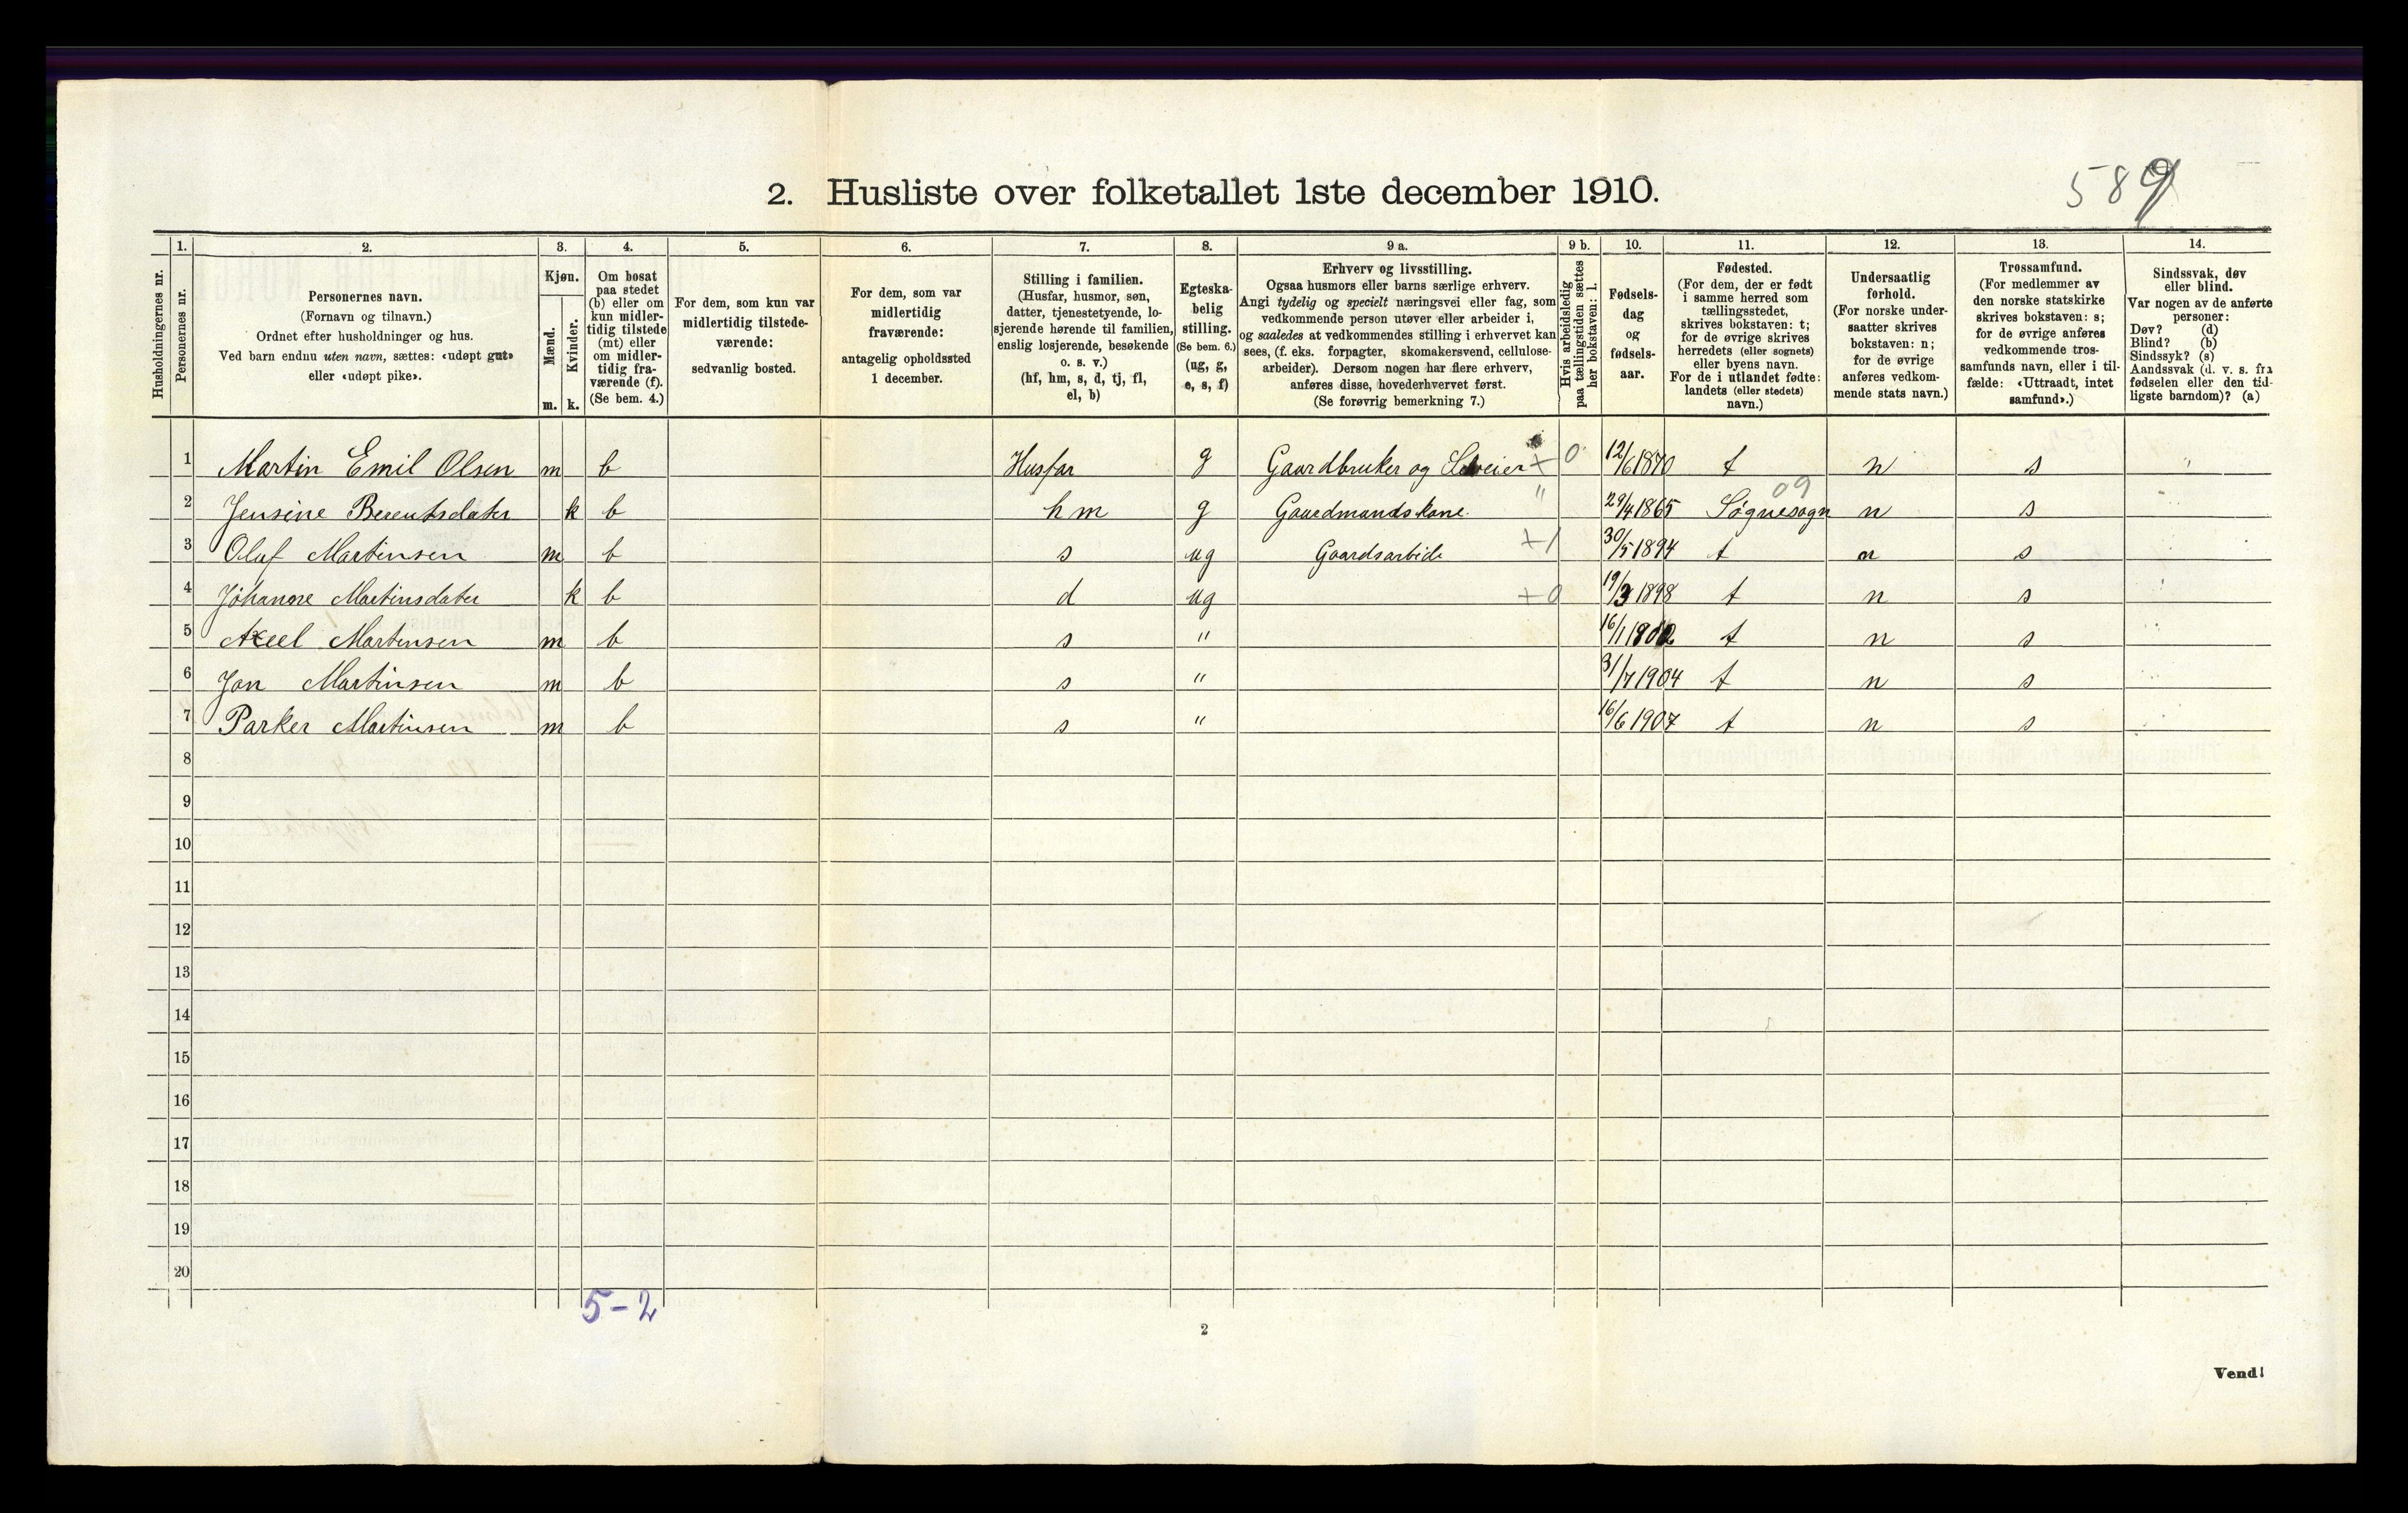 589
2. Husliste over folketallet 1ste december 1910.
Husholdningernes nr.
1.
Personernes nr.
2.
Personernes navn.
(Fornavn og tilnavn.)
Ordnet efter husholdninger og hus.
Ved barn endnu uten navn, sættes: «udøpt gut»
eller «udøpt pike».
3.
Kjøn.
Mænd.
Kvinder.
m. k.
4.
Om bosat
paa stedet
(b) eller om
kun midler-
tidig tilstede
(mt) eller
om midler-
tidig fra-
værende (f).
(Se bem. 4.)
5.
For dem, som kun var
midlertidig tilstede-
værende:
sedvanlig bosted.
6.
For dem, som var
midlertidig
fraværende:
antagelig opholdssted
1 december.
7.
Stilling i familien.
(Husfar, husmor, søn,
datter, tjenestetyende, lo-
sjerende hørende til familien,
enslig losjerende, besøkende
o. s. v.)
(hf, hm, s, d, tj, fl,
el, b)
8.
Egteska-
belig
stilling.
(Se bem. 6.)
(ug, g,
e, s, f)
9 a.
Erhverv og livsstilling.
Ogsaa husmors eller barns særlige erhverv.
Angi tydelig og specielt næringsvei eller fag, som
vedkommende person utøver eller arbeider i,
og saaledes at vedkommendes stilling i erhvervet kan
sees, (f. eks. forpagter, skomakersvend, cellulose-
arbeider). Dersom nogen har flere erhverv,
anføres disse, hovederhvervet først.
(Se forøvrig bemerkning 7.)
9 b.
Hvis arbeidsledig
paa tællingstiden sættes
her bokstaven: l.
10.
Fødsels-
dag
og
fødsels-
aar.
11.
Fødested.
(For dem, der er født
i samme herred som
tællingsstedet,
skrives bokstaven: t;
for de øvrige skrives
herredets (eller sognets)
eller byens navn.
For de i utlandet fødte:
landets (eller stedets)
navn.)
12.
Undersaatlig
forhold.
(For norske under-
saatter skrives
bokstaven: n;
for de øvrige
anføres vedkom-
mende stats navn.)
13.
Trossamfund.
(For medlemmer av
den norske statskirke
skrives bokstaven: s;
for de øvrige anføres
vedkommende tros-
samfunds navn, eller i til-
fælde: «Uttraadt, intet
samfund».)
14.
Sindssvak, døv
eller blind.
Var nogen av de anførte
personer:
Døv? (d)
Blind? (b)
Sindssyk? (s)
Aandssvak (d. v. s. fra
fødselen eller den tid-
ligste barndom)? (a)
1 Martin Emil Olsen m b Husfar g Gaardbruker og + 0 12/6 1870 t n s
2 Jensine Berentsdater k b hm g Gaardmandskone " 29/4 1865 Søgnesogn 09 n s
3 Oluf Martinsen m b s ug Gaardsarbide +1 30/5 1894 t n s
4 Johanne Martinsdater k b d ug +0 19/3 1898 t n s
5 Axcel Martensen m b s " 16/1 1902 t n s
6 Jon Martinsen m b s " 31/7 1904 t n s
7 Parker Martinsen m b s " 16/6 1907 t n s
8
9
10
11
12
13
14
15
16
17
18
19
20
5-2
2
Vend!